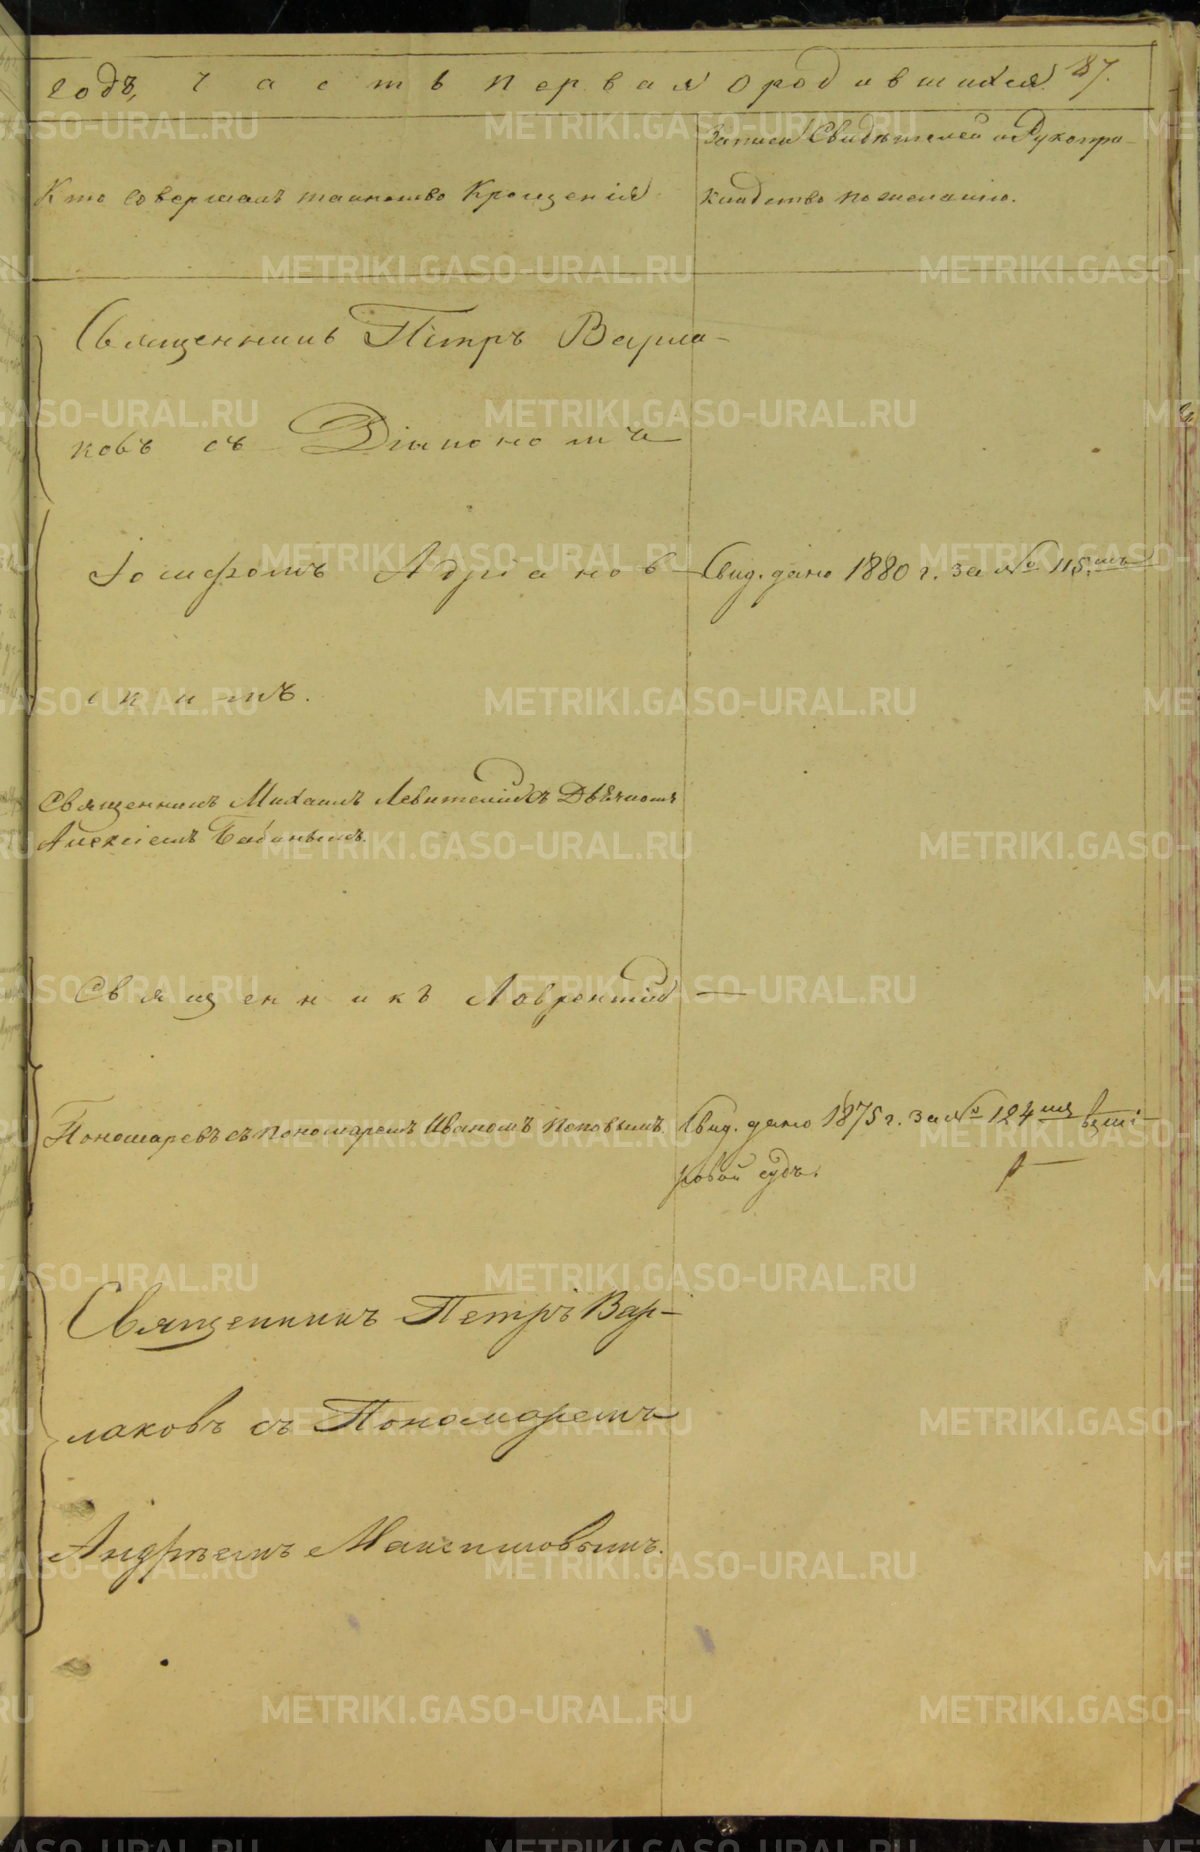 годъ, часть первая о родившихся. 87.
Кто совершалъ таинство Крещенія
Записи Свидѣтелей и Рукопри-
кладство по желанію.
Священникъ Петръ Варла-
ковъ съ Діакономъ
Іосифомъ Адріанов-
скимъ.
Свид. дано 1880 г. за № 115.мъ
Священникъ Михаилъ Левитскій съ Дьячкомъ
Алексіемъ Бабинымъ.
Священникъ Лаврентій —
Пономаревъ съ пономаремъ Иваномъ Поповымъ
Свид. дано 1875 г. за № 124 мъ въ ми-
ровой судъ.
Священникъ Петръ Вар-
лаковъ съ Пономаремъ
Андреемъ Максимовымъ.
METRIKI.GASO-URAL.RU